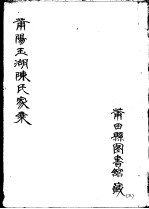 莆陽玉湖陳氏家乘
莆田縣圖書館藏